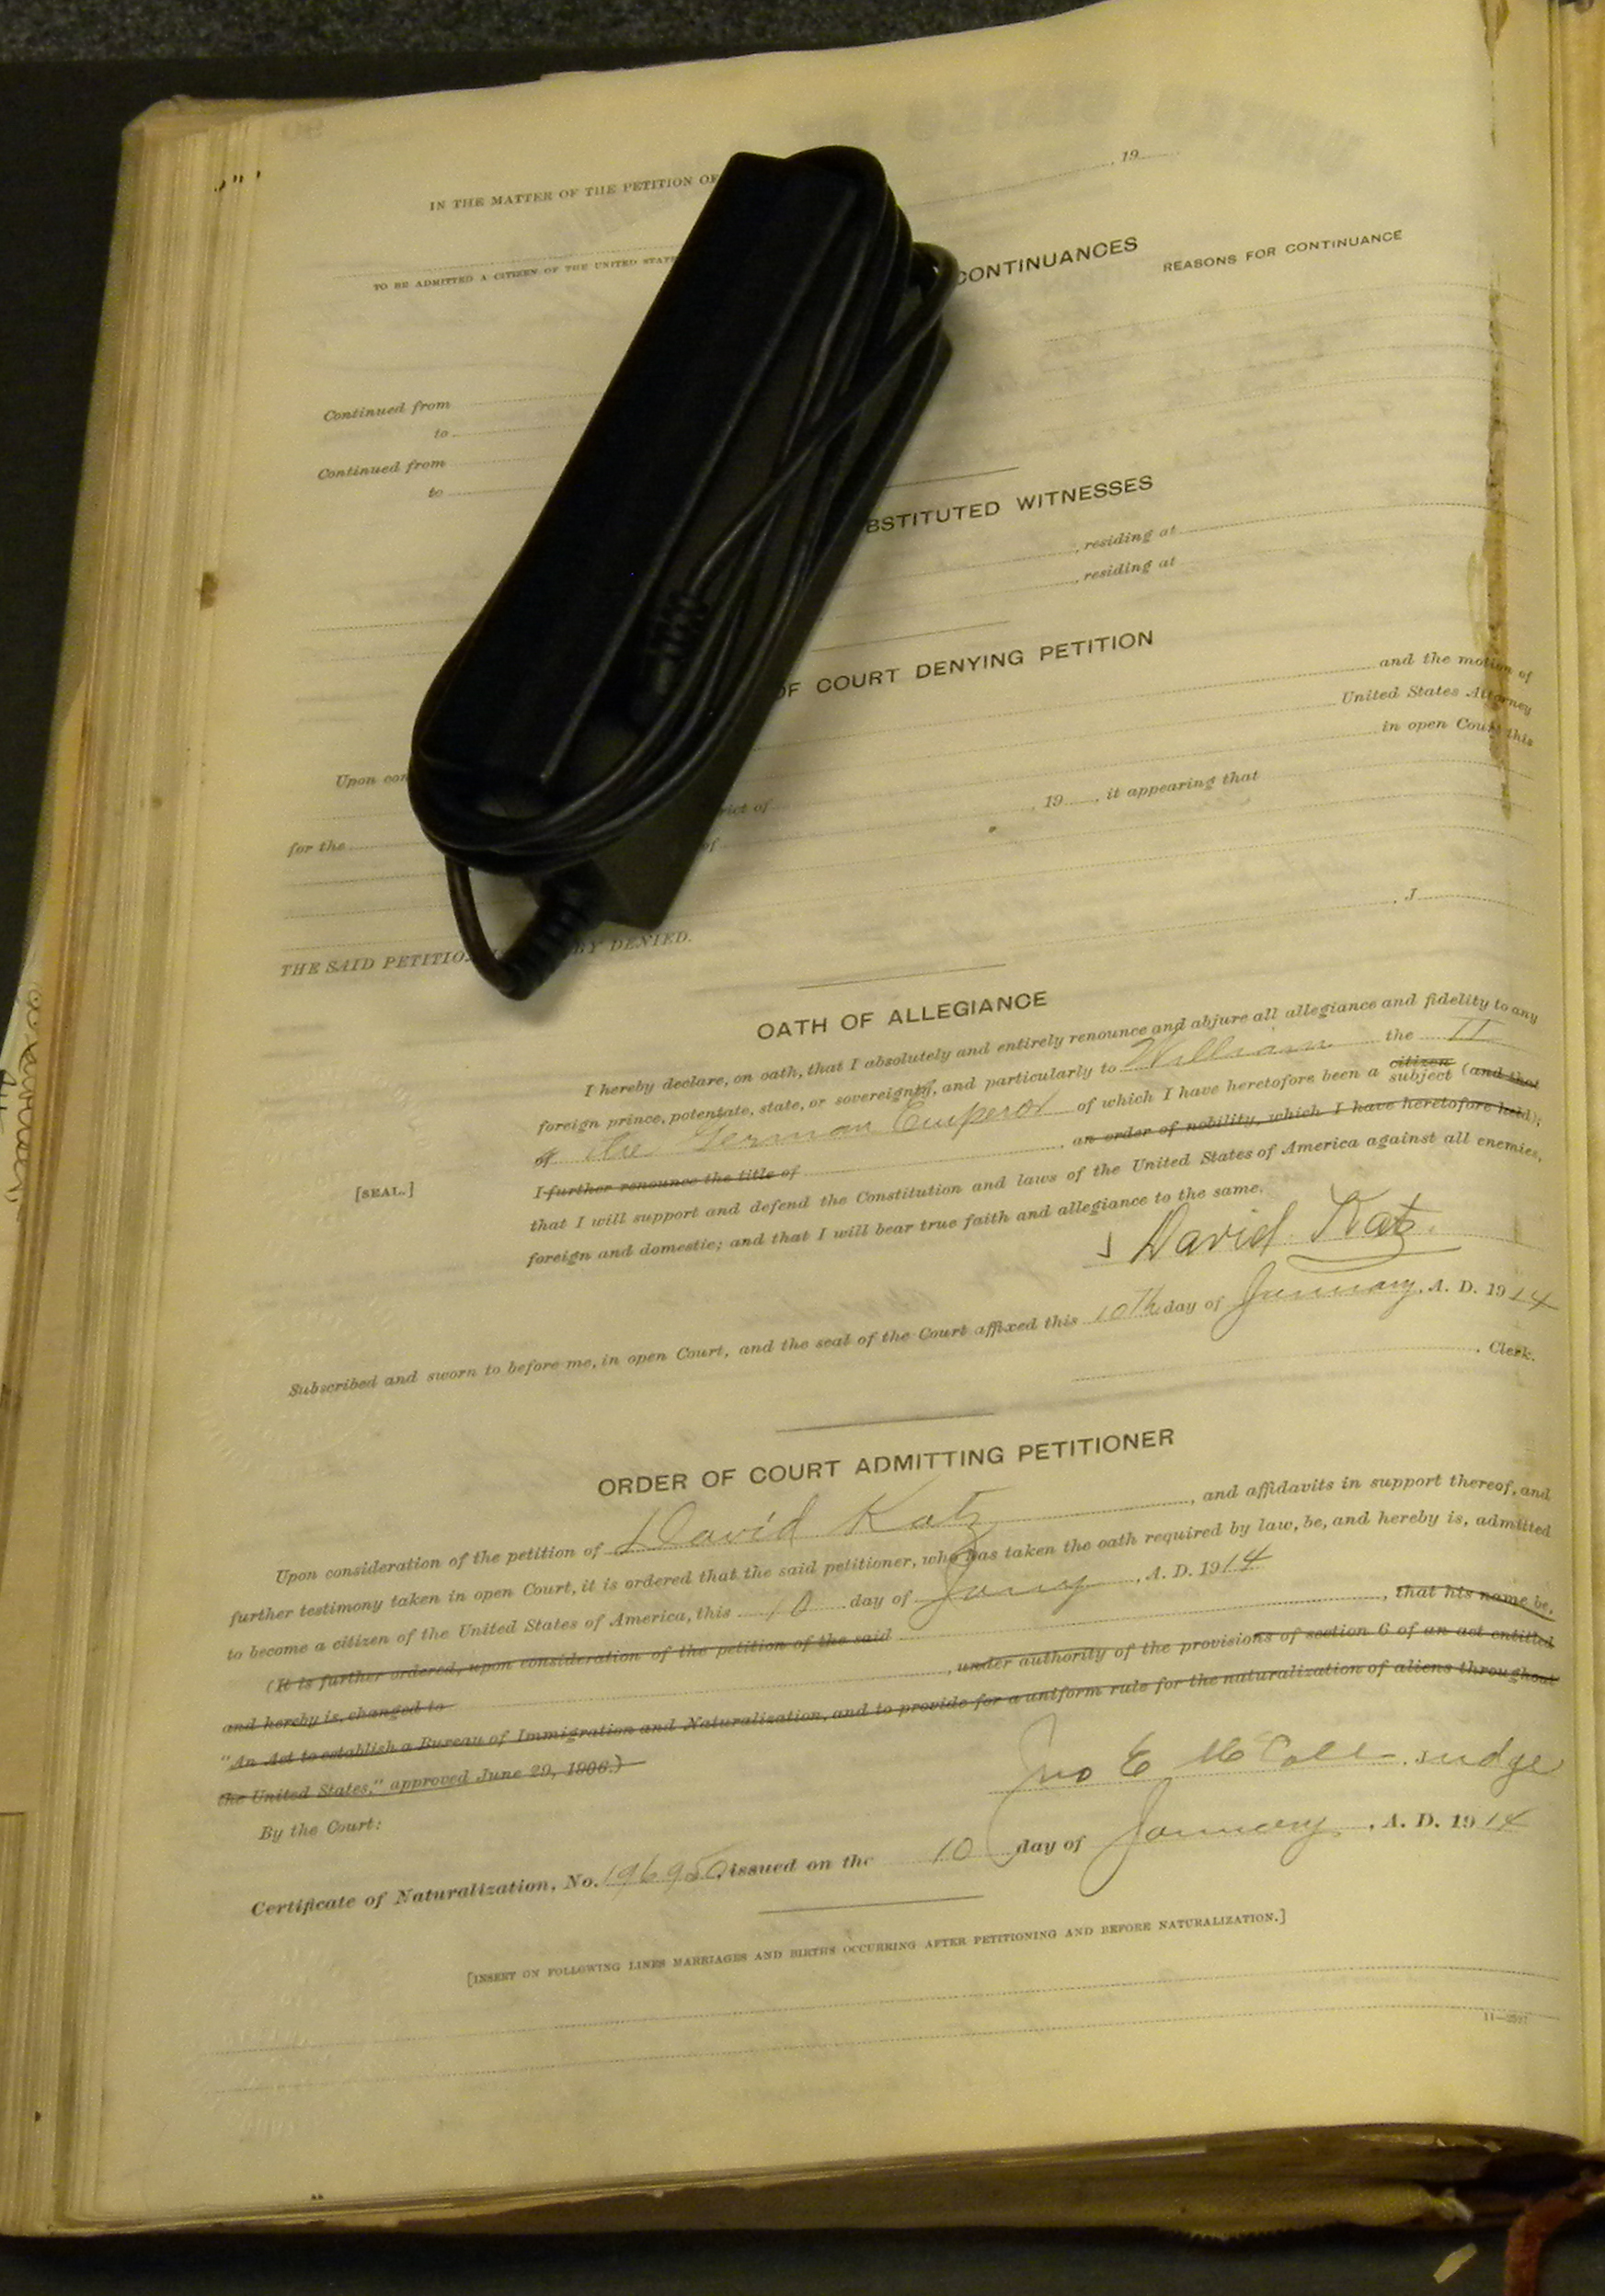 IN THE MATTER OF THE PETITION OF
, 19
TO BE ADMITTED A CITIZEN OF THE UNITED STATE
CONTINUANCES
REASONS FOR CONTINUANCE
Continued from
to
Continued from
to
BSTITUTED WITNESSES
, residing at
, residing at
OF COURT DENYING PETITION
Upon con and the motion of
for the rict of United States Attorney
of in open Court this
, 19 , it appearing that
THE SAID PETITIO BY DENIED.
, J
OATH OF ALLEGIANCE
I hereby declare, on oath, that I absolutely and entirely renounce and abjure all allegiance and fidelity to any
foreign prince, potentate, state, or sovereignty, and particularly to William the II
of the German Emperor of which I have heretofore been a citizen subject (and that
I further renounce the title of , an order of nobility, which I have heretofore held);
[SEAL.]
that I will support and defend the Constitution and laws of the United States of America against all enemies,
foreign and domestic; and that I will bear true faith and allegiance to the same.
David Katz.
Subscribed and sworn to before me, in open Court, and the seal of the Court affixed this 10th day of January, A. D. 1914
, Clerk.
ORDER OF COURT ADMITTING PETITIONER
Upon consideration of the petition of David Katz , and affidavits in support thereof, and
further testimony taken in open Court, it is ordered that the said petitioner, who has taken the oath required by law, be, and hereby is, admitted
to become a citizen of the United States of America, this 10 day of Jany , A. D. 1914
(It is further ordered, upon consideration of the petition of the said , that his name be,
and hereby is, changed to , under authority of the provisions of section 6 of an act entitled
"An Act to establish a Bureau of Immigration and Naturalization, and to provide for a uniform rule for the naturalization of aliens throughout
the United States," approved June 29, 1906.)
By the Court:
Jno E McCall Judge
Certificate of Naturalization, No. 196950, issued on the 10 day of January, A. D. 1914
[INSERT ON FOLLOWING LINES MARRIAGES AND BIRTHS OCCURRING AFTER PETITIONING AND BEFORE NATURALIZATION.]